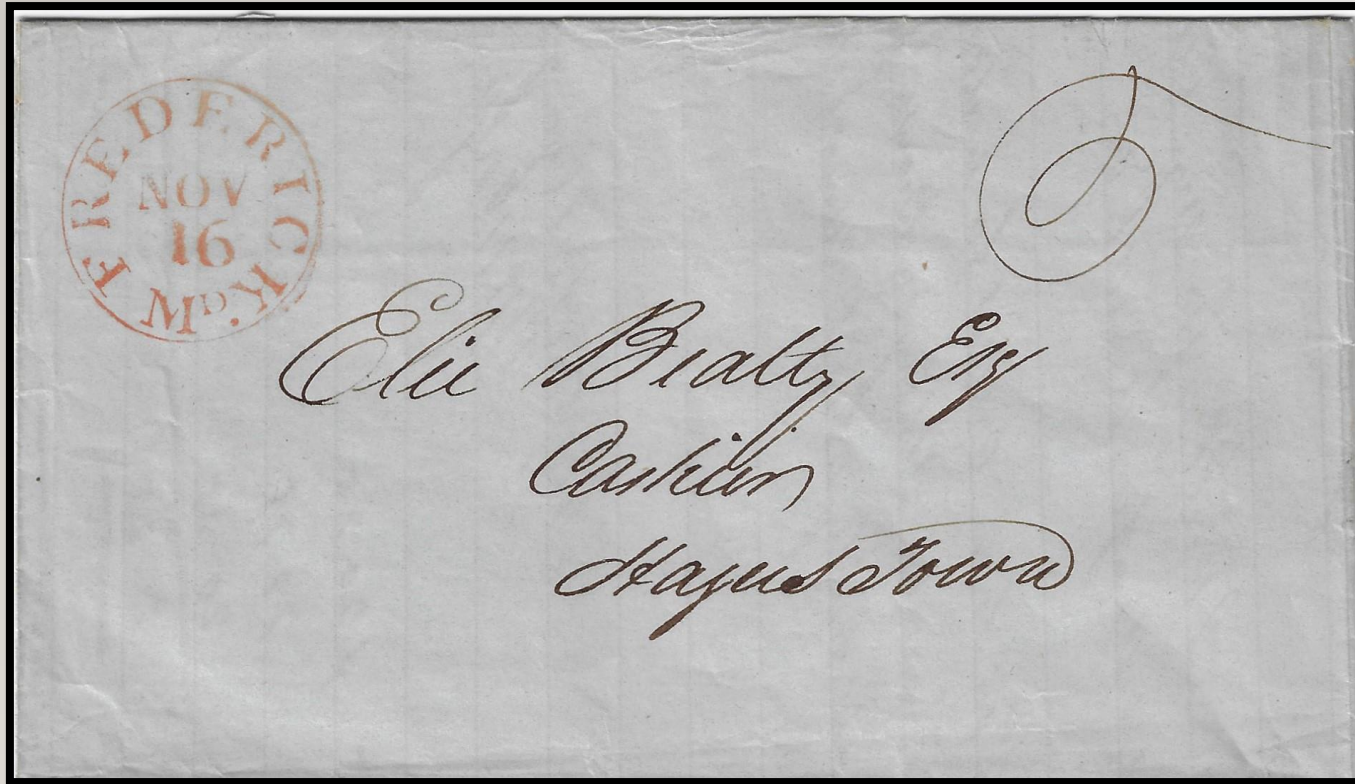 FREDERICK Md.
NOV
16
6
Elie Beatty Esq
Cashier
Hagers Town